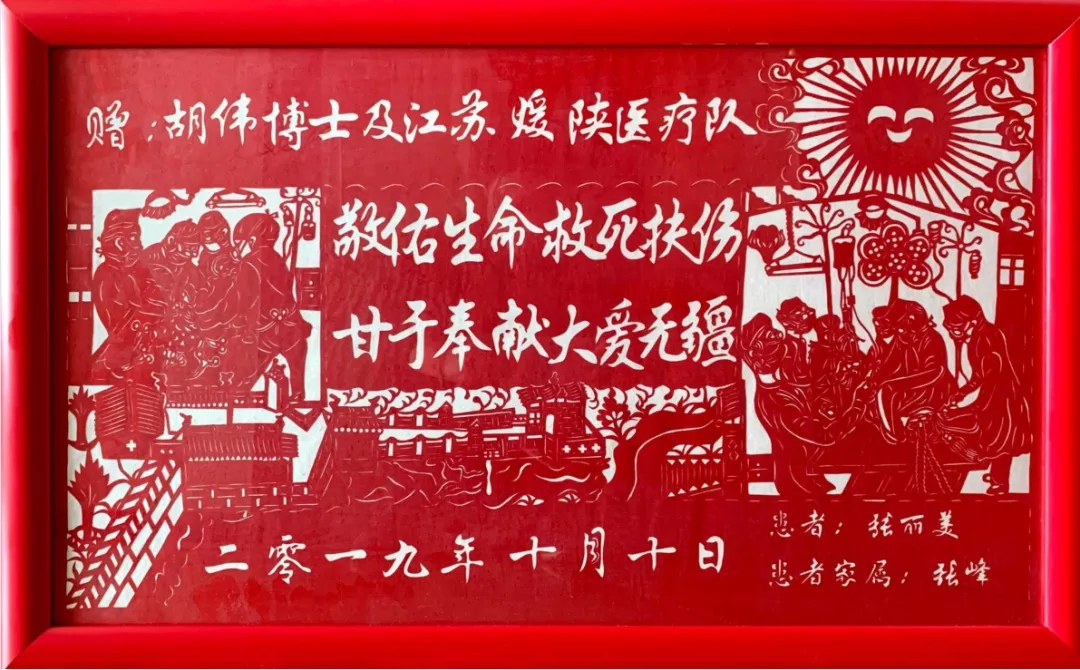 赠：胡伟博士及江苏媛陕医疗队
敬佑生命救死扶伤
甘于奉献大爱无疆
二零一九年十月十日
患者：张丽美
患者家属：张峰